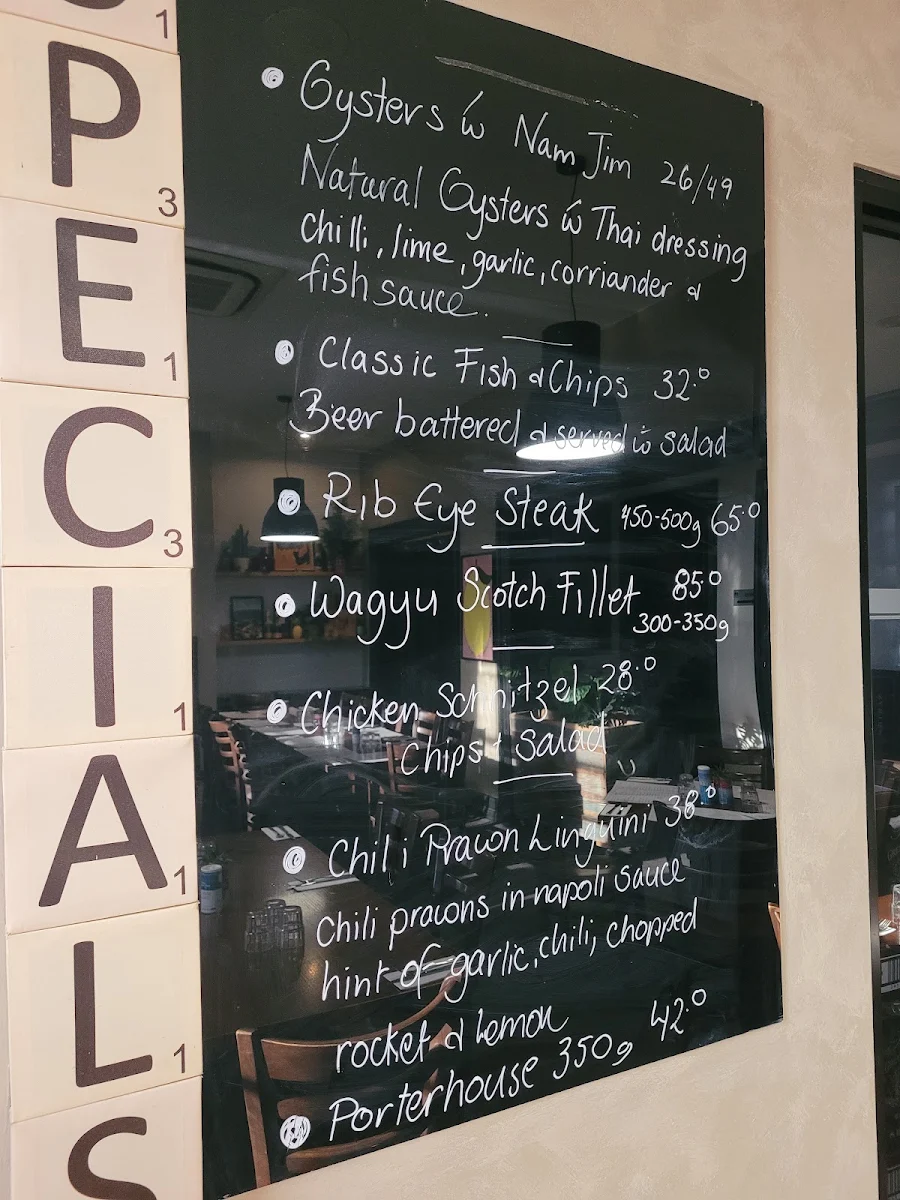 S
1
P
3
E
1
C
3
I
1
A
1
L
1
S
Oysters w Nam Jim 26/49
Natural Oysters w Thai dressing
chilli, lime, garlic, corriander &
fish sauce.
Classic Fish & Chips 32.0
Beer battered & served w salad
Rib Eye Steak 450-500g 65.0
Wagyu Scotch Fillet 85.0
300-350g
Chicken Schnitzel 28.0
Chips + Salad
Chili Prawn Linguini 38.0
Chili prawns in napoli sauce
hint of garlic, chili, chopped
rocket & lemon
Porterhouse 350g 42.0